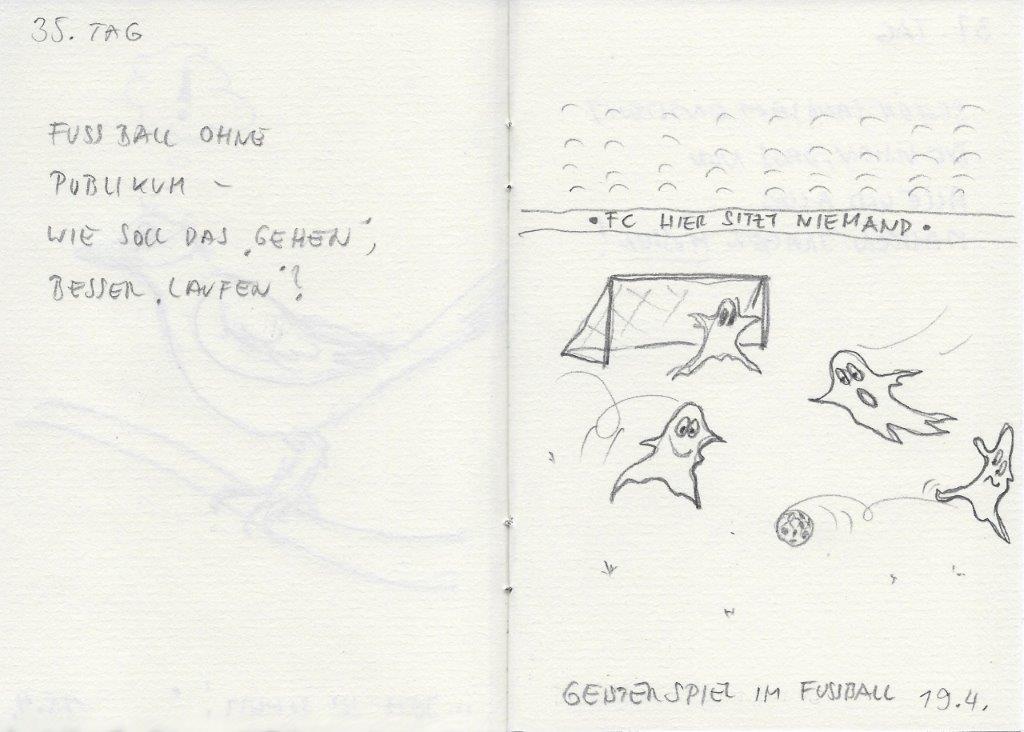 35. TAG
FUSSBALL OHNE
PUBLIKUM –
WIE SOLL DAS „GEHEN“,
BESSER „LAUFEN“?
• FC HIER SITZT NIEMAND •
GEISTERSPIEL IM FUSSBALL 19.4.